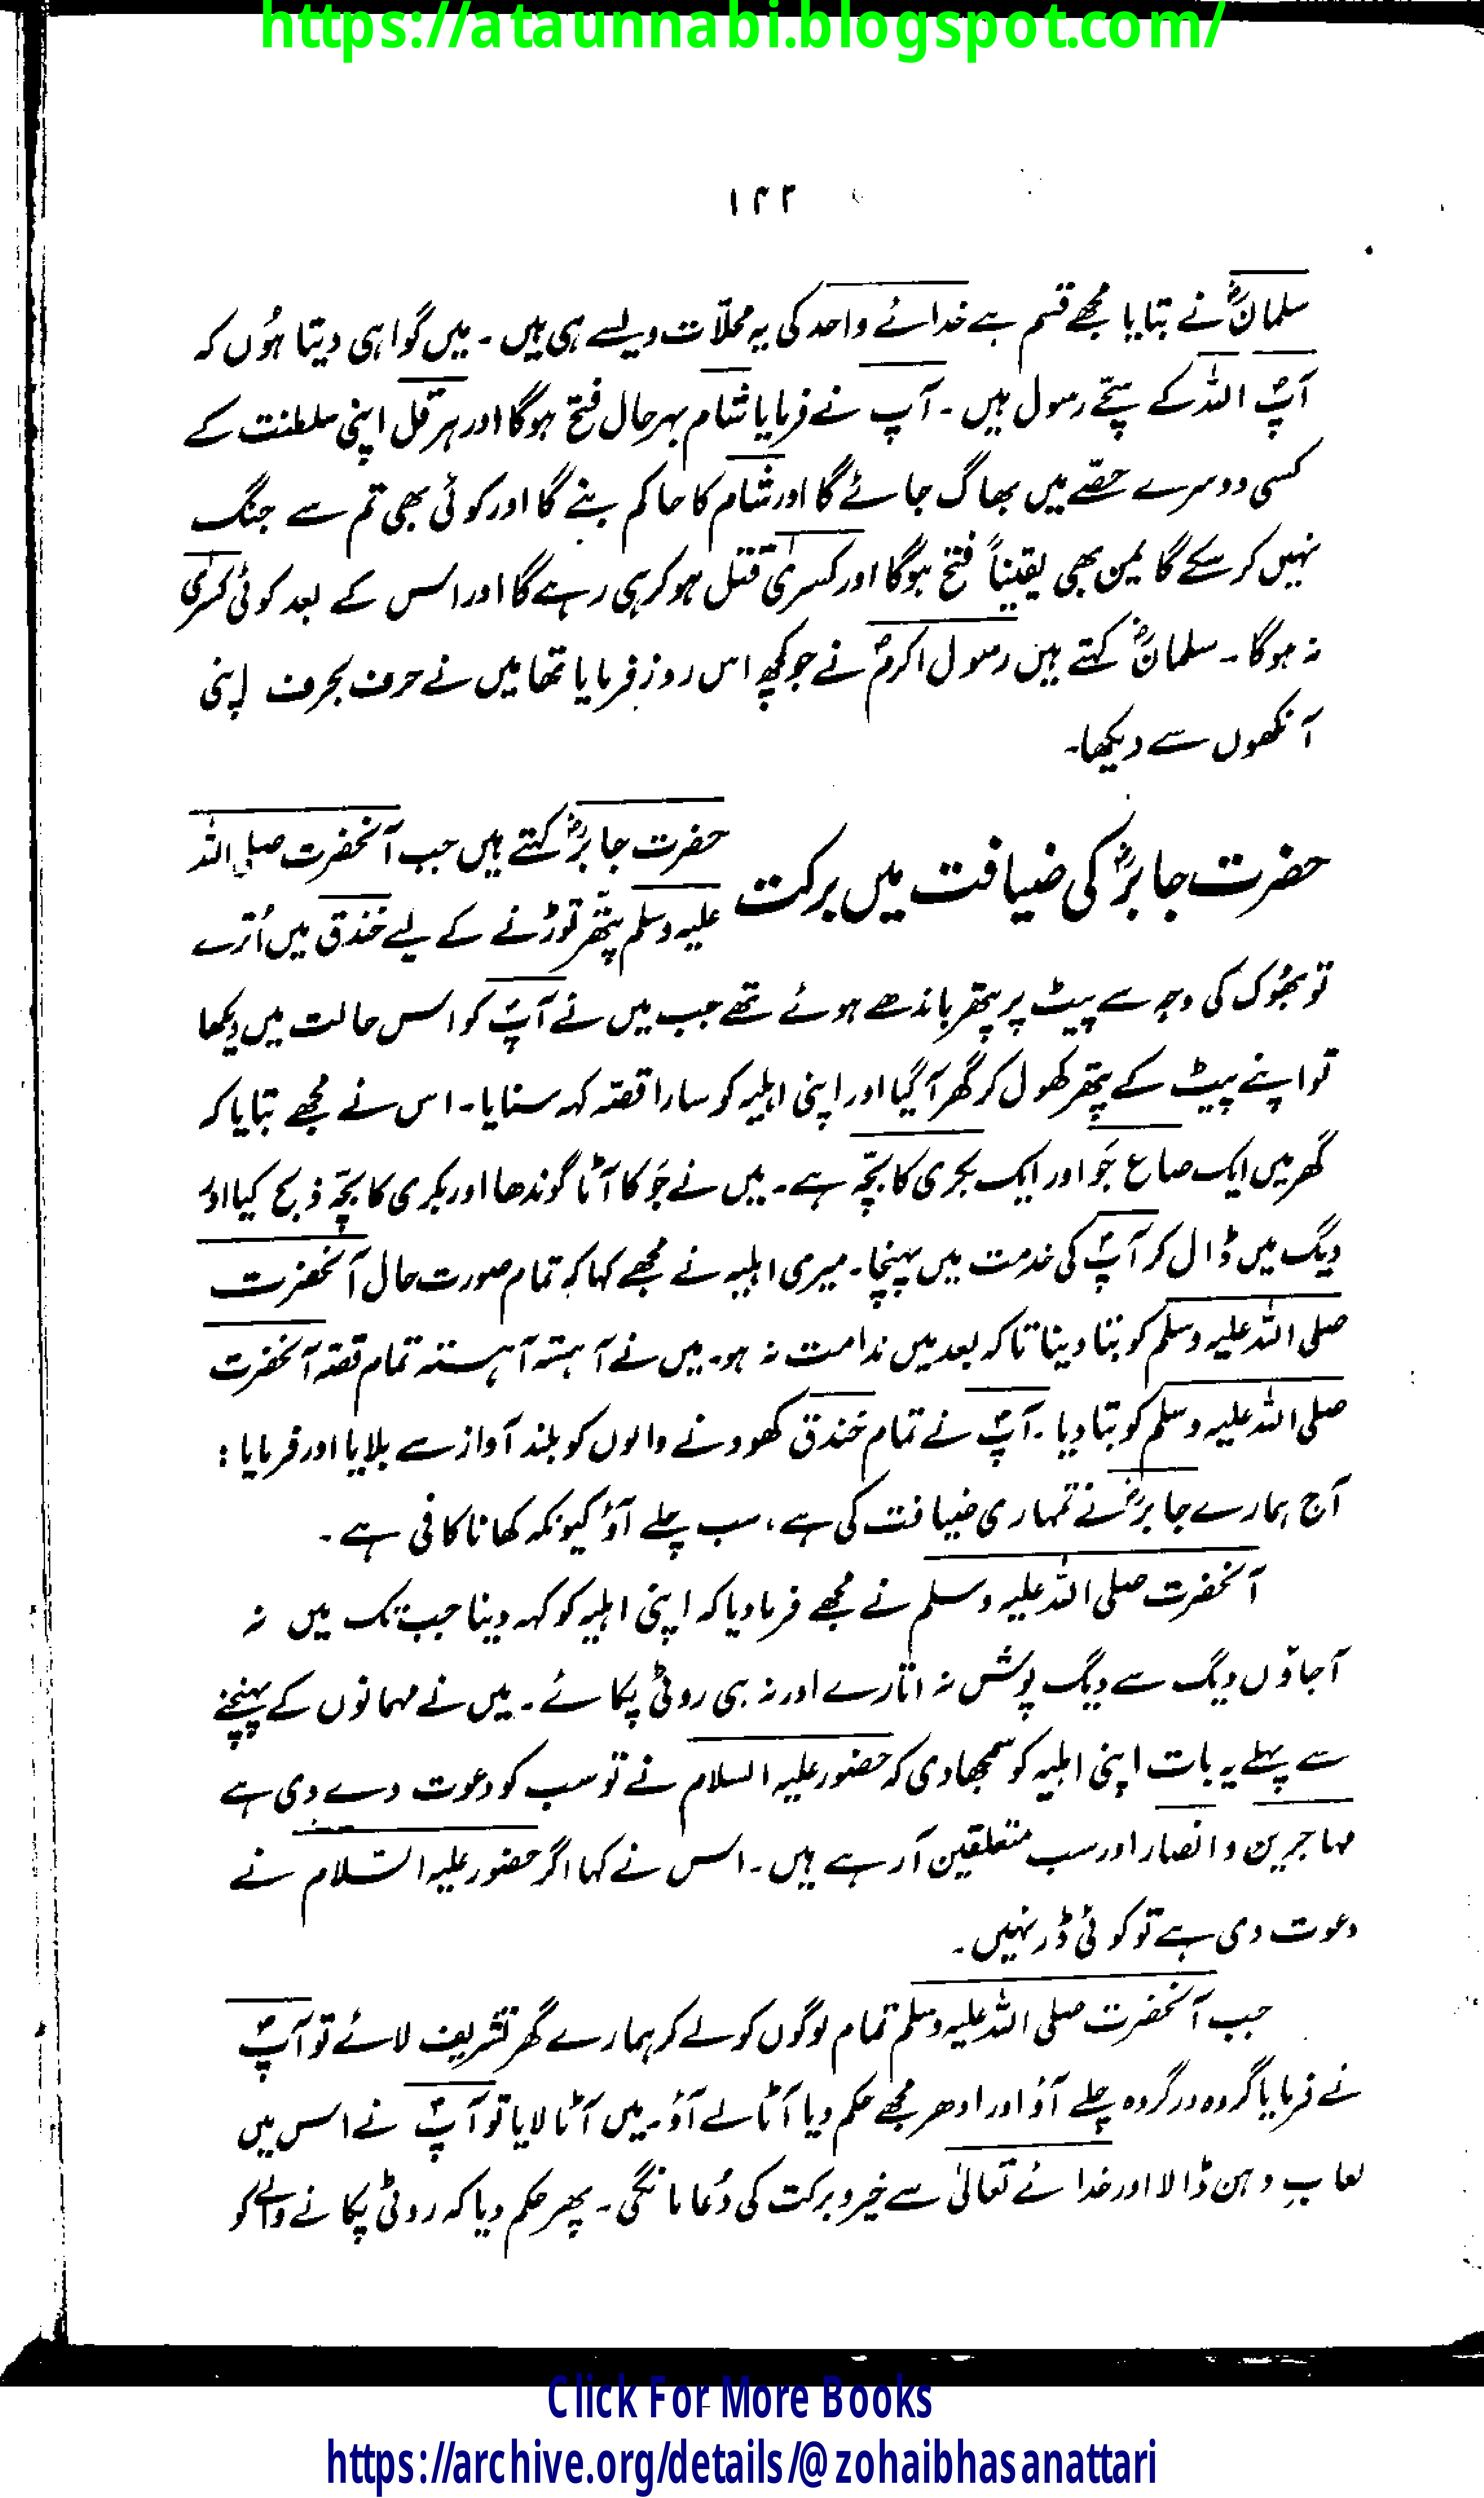 https://ataunnabi.blogspot.com/
۱۲۲
سلمانؓ نے بتایا مجھے قسم ہے خدائے واحد کی یہ محلّات ویسے ہی ہیں ۔ میں گواہی دیتا ہُوں کہ
آپؐ اللہ کے سچّے رسول ہیں ۔ آپ نے فرمایا شام بہرحال فتح ہوگا اور ہرقل اپنی سلطنت کے
کسی دوسرے حصّے میں بھاگ جائے گا اور شام کا حاکم بنے گا اور کوئی بھی تم سے جنگ
نہیں کر سکے گا یمن بھی یقیناً فتح ہوگا اور کسریٰ قتل ہو کر ہی رہے گا اور اس کے بعد کوئی کسریٰ
نہ ہوگا ۔ سلمانؓ کہتے ہیں رسول اکرمؐ نے جو کچھ اس روز فرمایا تھا میں نے حرف بحرف اپنی
آنکھوں سے دیکھا۔
حضرت جابرؓ کی ضیافت میں برکت
حضرت جابرؓ کہتے ہیں جب آنحضرت صلی اللہ
علیہ وسلم پتّھر توڑنے کے لیے خندق میں اُترے
تو بھُوک کی وجہ سے پیٹ پر پتھر باندھے ہوئے تھے جب میں نے آپؐ کو اس حالت میں دیکھا
تو اپنے پیٹ کے پتھر کھول کر گھر آ گیا اور اپنی اہلیہ کو سارا قصّہ کہہ سنایا۔ اس نے مجھے بتایا کہ
گھر میں ایک صاع جَو اور ایک بکری کا بچّہ ہے۔ میں نے جَو کا آٹا گوندھا اور بکری کا بچّہ ذبح کیا اور
دیگ میں ڈال کر آپؐ کی خدمت میں پہنچا۔ میری اہلیہ نے مجھے کہا کہ تمام صورت حال آنحضرت
صلی اللہ علیہ وسلم کو بتا دینا تاکہ بعد میں ندامت نہ ہو۔ میں نے آہستہ آہستہ تمام قصّہ آنحضرت
صلی اللہ علیہ وسلم کو بتا دیا ۔ آپؐ نے تمام خندق کھودنے والوں کو بلند آواز سے بلایا اور فرمایا :
آج ہمارے جابرؓ نے تمہاری ضیافت کی ہے، سب چلے آؤ کیونکہ کھانا کافی ہے ۔
آنحضرت صلی اللہ علیہ وسلم نے مجھے فرما دیا کہ اپنی اہلیہ کو کہہ دینا جب تک میں نہ
آجاؤں دیگ سے دیگ پوش نہ اتارے اور نہ ہی روٹی پکائے ۔ میں نے مہمانوں کے پہنچنے
سے پہلے یہ بات اپنی اہلیہ کو سمجھا دی کہ حضور علیہ السلام نے تو سب کو دعوت دے دی ہے
مہاجرین و انصار اور سب متعلقین آ رہے ہیں ۔ اس نے کہا اگر حضور علیہ السّلام نے
دعوت دی ہے تو کوئی ڈر نہیں ۔
جب آنحضرت صلی اللہ علیہ وسلم تمام لوگوں کو لے کر ہمارے گھر تشریف لائے تو آپؐ
نے فرمایا گروہ در گروہ چلے آؤ اور ادھر مجھے حکم دیا آٹا لے آؤ ۔ میں آٹا لایا تو آپؐ نے اس میں
لعابِ دہن ڈالا اور خدائے تعالیٰ سے خیر و برکت کی دُعا مانگی ۔ پھر حکم دیا کہ روٹی پکانے والے کو
Click For More Books
https://archive.org/details/@zohaibhasanattari